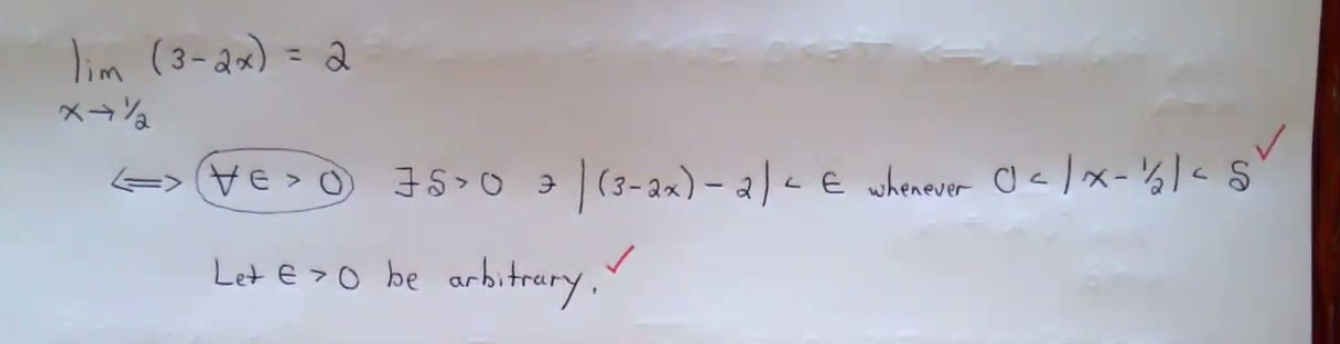 lim (3-2x) = 2
x→1/2
⟺ ∀ε > 0 ∃δ > 0 ∍ |(3-2x) - 2| < ε whenever 0 < |x - 1/2| < δ ✓
Let ε > 0 be arbitrary. ✓